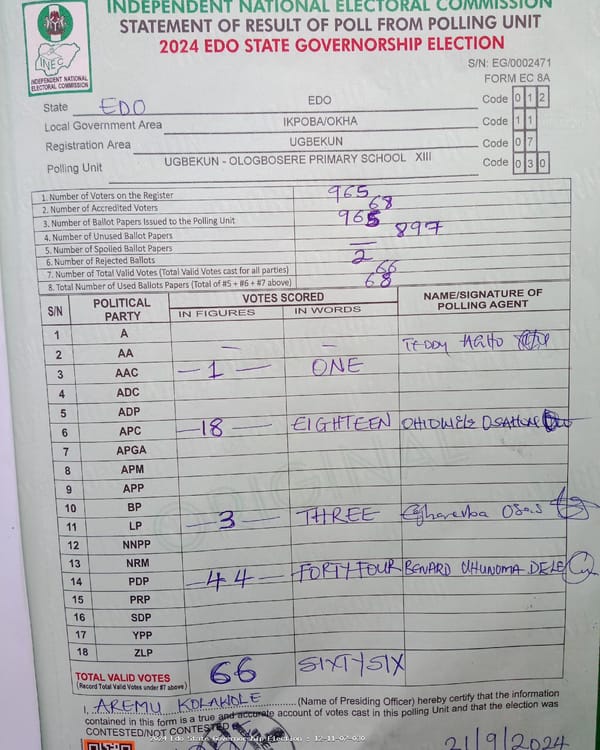 INDEPENDENT NATIONAL ELECTORAL COMMISSION
STATEMENT OF RESULT OF POLL FROM POLLING UNIT
2024 EDO STATE GOVERNORSHIP ELECTION
INEC
INDEPENDENT NATIONAL
ELECTORAL COMMISSION
S/N: EG/0002471
FORM EC 8A
State EDO EDO Code 0 1 2
Local Government Area IKPOBA/OKHA Code 1 1
Registration Area UGBEKUN Code 0 7
Polling Unit UGBEKUN - OLOGBOSERE PRIMARY SCHOOL XIII Code 0 3 0
1. Number of Voters on the Register 965
2. Number of Accredited Voters 68
3. Number of Ballot Papers Issued to the Polling Unit 965
4. Number of Unused Ballot Papers 897
5. Number of Spoiled Ballot Papers —
6. Number of Rejected Ballots 2
7. Number of Total Valid Votes (Total Valid Votes cast for all parties) 66
8. Total Number of Used Ballots Papers (Total of #5 + #6 + #7 above) 68
S/N POLITICAL PARTY VOTES SCORED NAME/SIGNATURE OF POLLING AGENT
IN FIGURES IN WORDS
1 A
2 AA — — TEDDY
3 AAC —1— ONE
4 ADC
5 ADP
6 APC —18— EIGHTEEN
7 APGA
8 APM
9 APP
10 BP
11 LP —3— THREE Osas
12 NNPP
13 NRM
14 PDP —44— FORTY FOUR BENARD UHUNOMA DELE
15 PRP
16 SDP
17 YPP
18 ZLP
TOTAL VALID VOTES 66 SIXTY SIX
(Record Total Valid Votes under #7 above)
I, AREMU KOLAWOLE (Name of Presiding Officer) hereby certify that the information
contained in this form is a true and accurate account of votes cast in this polling Unit and that the election was
CONTESTED/NOT CONTESTED
2024 Edo State Governorship Election : 12-11-07-030
21/9/2024
ORIGINAL